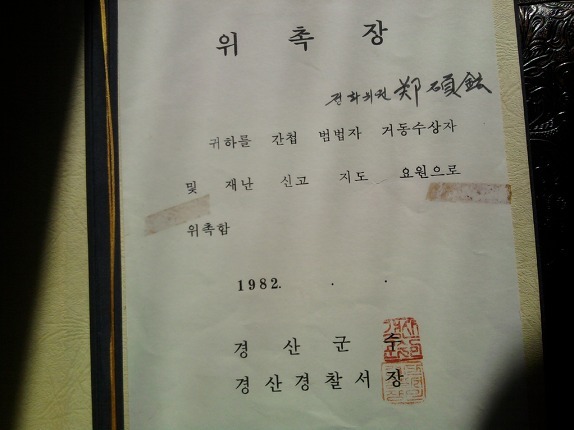 위 촉 장
전화위원 鄭碩鉉
귀하를 간첩 범법자 거동수상자
및 재난 신고 지도 요원으로
위촉함
1982. . .
경 산 군 수
경 산 경 찰 서 장